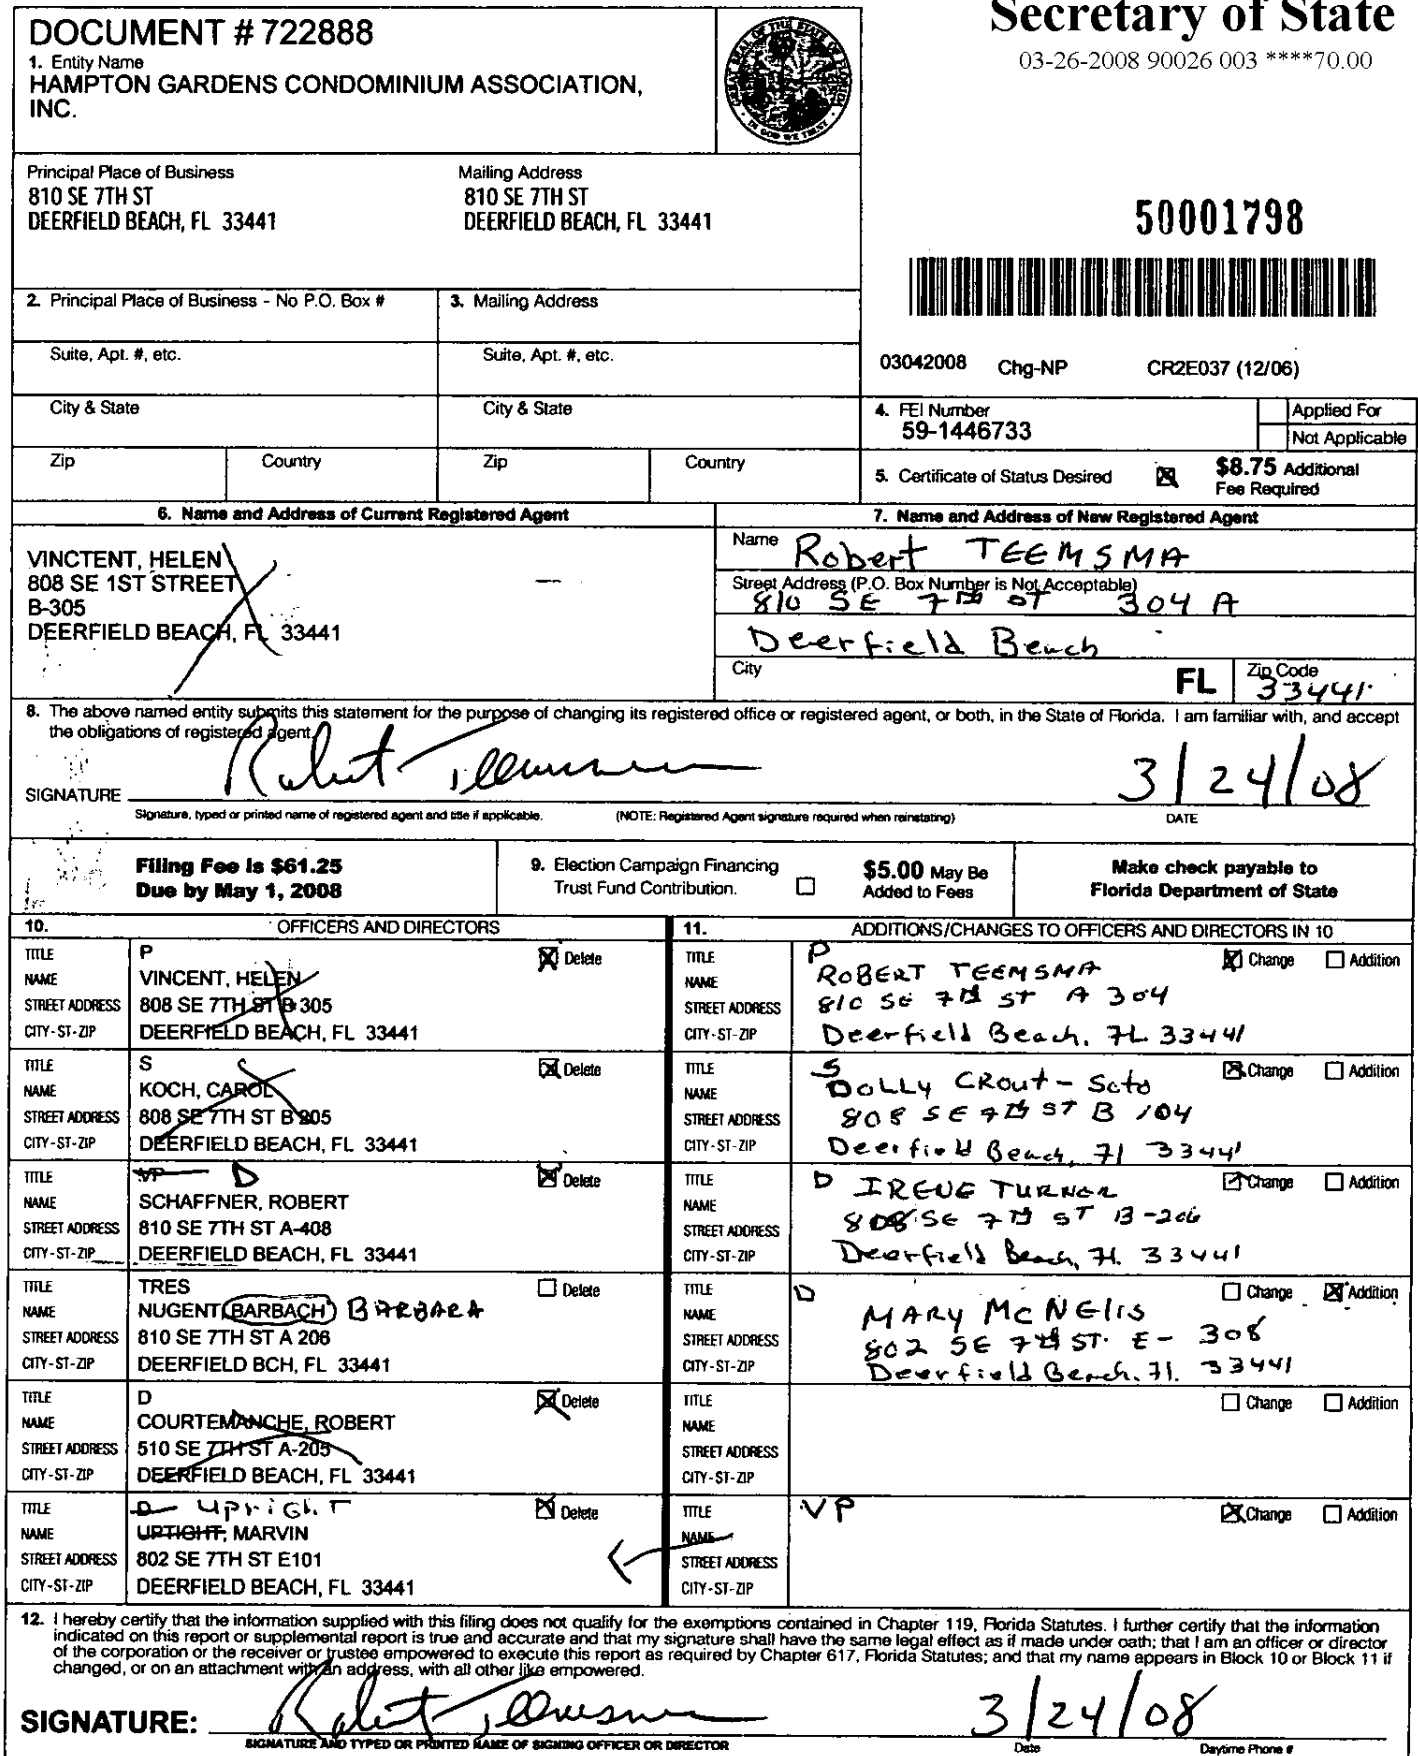 Secretary of State
03-26-2008 90026 003 ****70.00
DOCUMENT # 722888
1. Entity Name
HAMPTON GARDENS CONDOMINIUM ASSOCIATION,
INC.
Principal Place of Business
810 SE 7TH ST
DEERFIELD BEACH, FL 33441
Mailing Address
810 SE 7TH ST
DEERFIELD BEACH, FL 33441
50001798
2. Principal Place of Business - No P.O. Box #
3. Mailing Address
Suite, Apt. #, etc.
Suite, Apt. #, etc.
City & State
City & State
Zip
Country
Zip
Country
03042008 Chg-NP CR2E037 (12/06)
4. FEI Number
59-1446733
Applied For
Not Applicable
5. Certificate of Status Desired
$8.75 Additional
Fee Required
6. Name and Address of Current Registered Agent
VINCTENT, HELEN
808 SE 1ST STREET
B-305
DEERFIELD BEACH, FL 33441
7. Name and Address of New Registered Agent
Name Robert TEEMSMA
Street Address (P.O. Box Number is Not Acceptable)
810 SE 7TH ST 304 A
Deerfield Beach
City
FL
Zip Code
33441
8. The above named entity submits this statement for the purpose of changing its registered office or registered agent, or both, in the State of Florida. I am familiar with, and accept
the obligations of registered agent.
SIGNATURE Robert Teemsma 3/24/08
Signature, typed or printed name of registered agent and title if applicable. (NOTE: Registered Agent signature required when reinstating) DATE
Filing Fee is $61.25
Due by May 1, 2008
9. Election Campaign Financing
Trust Fund Contribution.
$5.00 May Be
Added to Fees
Make check payable to
Florida Department of State
10. OFFICERS AND DIRECTORS
11. ADDITIONS/CHANGES TO OFFICERS AND DIRECTORS IN 10
TITLE P Delete
NAME VINCENT, HELEN
STREET ADDRESS 808 SE 7TH ST B 305
CITY-ST-ZIP DEERFIELD BEACH, FL 33441
TITLE P Change Addition
NAME ROBERT TEEMSMA
STREET ADDRESS 810 SE 7TH ST A 304
CITY-ST-ZIP Deerfield Beach, FL 33441
TITLE S Delete
NAME KOCH, CAROL
STREET ADDRESS 808 SE 7TH ST B 205
CITY-ST-ZIP DEERFIELD BEACH, FL 33441
TITLE S Change Addition
NAME DOLLY CROUT-Soto
STREET ADDRESS 808 SE 7TH ST B 104
CITY-ST-ZIP Deerfield Beach, Fl 33441
TITLE VP D Delete
NAME SCHAFFNER, ROBERT
STREET ADDRESS 810 SE 7TH ST A-408
CITY-ST-ZIP DEERFIELD BEACH, FL 33441
TITLE D Change Addition
NAME IRENE TURNER
STREET ADDRESS 808 SE 7TH ST B-206
CITY-ST-ZIP Deerfield Beach, Fl. 33441
TITLE TRES Delete
NAME NUGENT BARBACH BARBARA
STREET ADDRESS 810 SE 7TH ST A 206
CITY-ST-ZIP DEERFIELD BCH, FL 33441
TITLE D Change Addition
NAME MARY MCNELIS
STREET ADDRESS 802 SE 7TH ST. E-308
CITY-ST-ZIP Deerfield Beach, Fl. 33441
TITLE D Delete
NAME COURTEMANCHE, ROBERT
STREET ADDRESS 510 SE 7TH ST A-205
CITY-ST-ZIP DEERFIELD BEACH, FL 33441
TITLE Change Addition
NAME
STREET ADDRESS
CITY-ST-ZIP
TITLE D UpriGhT Delete
NAME UPTIGHT, MARVIN
STREET ADDRESS 802 SE 7TH ST E101
CITY-ST-ZIP DEERFIELD BEACH, FL 33441
TITLE VP Change Addition
NAME
STREET ADDRESS
CITY-ST-ZIP
12. I hereby certify that the information supplied with this filing does not qualify for the exemptions contained in Chapter 119, Florida Statutes. I further certify that the information
indicated on this report or supplemental report is true and accurate and that my signature shall have the same legal effect as if made under oath; that I am an officer or director
of the corporation or the receiver or trustee empowered to execute this report as required by Chapter 617, Florida Statutes; and that my name appears in Block 10 or Block 11 if
changed, or on an attachment with an address, with all other like empowered.
SIGNATURE: Robert Teemsma 3/24/08
SIGNATURE AND TYPED OR PRINTED NAME OF SIGNING OFFICER OR DIRECTOR Date Daytime Phone #